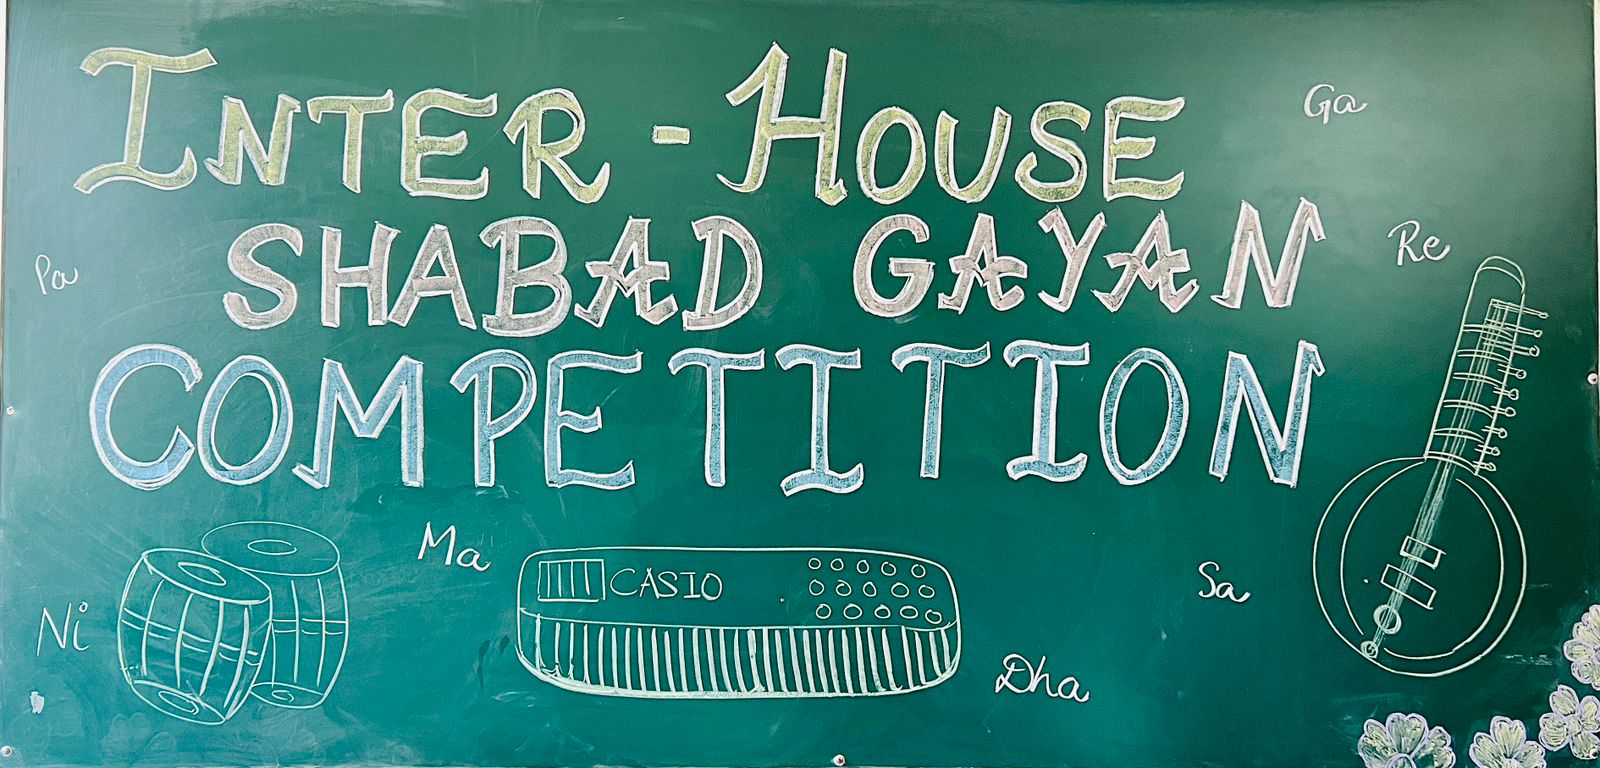 INTER - HOUSE
Ga
SHABAD GAYAN
Re
Pa
COMPETITION
Ma
CASIO
Sa
Ni
Dha